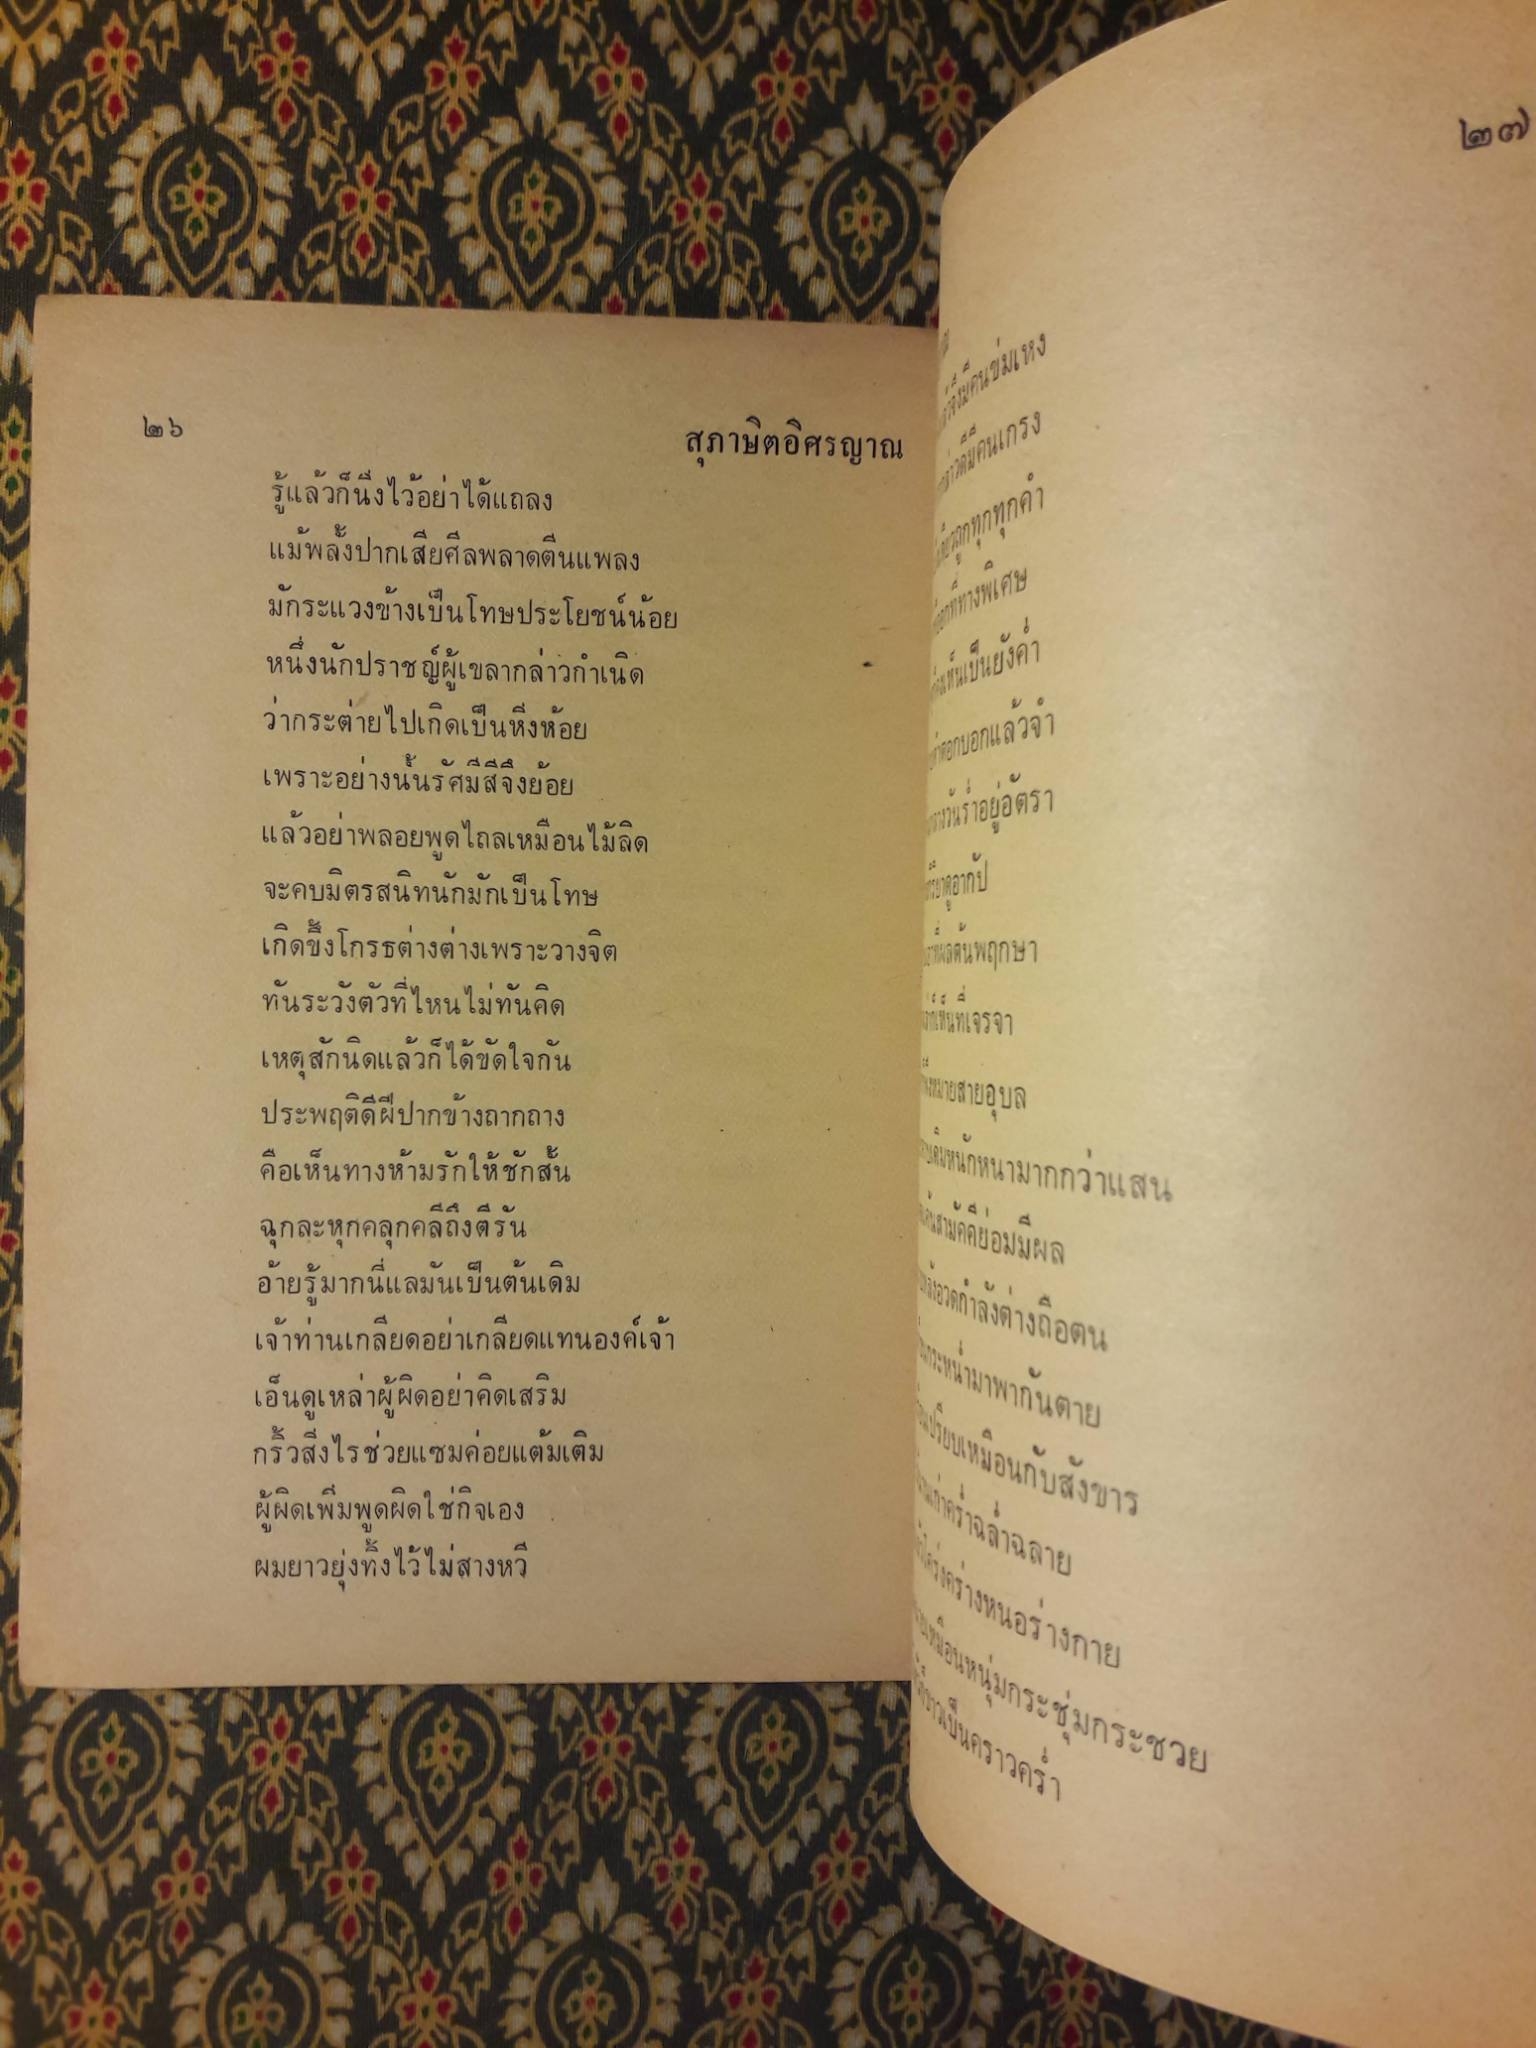 ๒๖
สุภาษิตอิศรญาณ
รู้แล้วก็นิ่งไว้อย่าได้แถลง
แม้พลั้งปากเสียศีลพลาดตีนแพลง
มักระแวงข้างเป็นโทษประโยชน์น้อย
หนึ่งนักปราชญ์ผู้เขลากล่าวกำเนิด
ว่ากระต่ายไปเกิดเป็นหิ่งห้อย
เพราะอย่างนั้นรัศมีสีจึงย้อย
แล้วอย่าพลอยพูดไถลเหมือนไม้ลิด
จะคบมิตรสนิทนักมักเป็นโทษ
เกิดขึ้งโกรธต่างต่างเพราะวางจิต
ทันระวังตัวที่ไหนไม่ทันคิด
เหตุสักนิดแล้วก็ได้ขัดใจกัน
ประพฤติดีฝีปากข้างถากถาง
คือเห็นทางห้ามรักให้ชักสั้น
ฉุกละหุกคลุกคลีถึงตีรัน
อ้ายรู้มากนี่แลมันเป็นต้นเดิม
เจ้าท่านเกลียดอย่าเกลียดแทนองค์เจ้า
เอ็นดูเหล่าผู้ผิดอย่าคิดเสริม
กริ้วสิ่งไรช่วยแซมค่อยแต้มเติม
ผู้ผิดเพิ่มพูดผิดใช่กิจเอง
ผมยาวยุ่งทิ้งไว้ไม่สางหวี
๒๗
จึงมีคนข่มเหง
ดีมีคนเกรง
ถูกทุกทุกคำ
ที่ทางพิเศษ
เห็นเป็นยังค่ำ
ตอกบอกแล้วจำ
กลางวันร่ำอยู่อัตรา
กิริยาดูอากัป
ที่ผลต้นพฤกษา
ก็เห็นที่เจรจา
หมายสายอุบล
เดิมหนักหนามากกว่าแสน
สามัคคีย่อมมีผล
อวดกำลังต่างถือตน
กระหน่ำมาพากันตาย
เปรียบเหมือนกับสังขาร
เก่าคร่ำฉล่ำฉลาย
โคร่งคร่างหนอร่างกาย
เหมือนหนุ่มกระชุ่มกระชวย
ขาวเป็นคราวคร่ำ